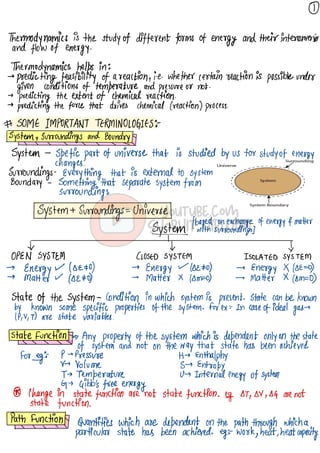 1
Thermodynamics is the study of different forms of energy and their interconversion
and flow of energy.
Thermodynamics helps in:
→ predicting feasibility of a reaction, i.e. whether certain reaction is possible under
given conditions of temperature and pressure or not.
→ predicting the extent of chemical reaction.
→ predicting the force that drives chemical (reaction) process
# SOME IMPORTANT TERMINOLOGIES:-
System, Surroundings and Boundary
System - Spefic part of universe that is studied by us for study of energy
changes.
Surroundings- Everything that is external to system
Boundary - Something that separate system from
surroundings
Surrounding
Universe
System
System Boundary
System + Surroundings = Universe
System [based on exchange of energy & matter
with surroundings]
OPEN SYSTEM
→ Energy ✓ (ΔE≠0)
→ Matter ✓
CLOSED SYSTEM
→ Energy ✓ (ΔE≠0)
→ Matter X (Δm=0)
ISOLATED SYSTEM
→ Energy X (ΔE=0)
→ Matter X (Δm=0)
State of the System - Condition in which system is present. State can be known
by known some specific properties of the system. For ex:- In case of ideal gas →
(P,V,T) are state variables
State Function → Any property of the system which is dependent only on the state
of system and not on the way that state has been achieved.
For eg:- P → Pressure H → Enthalphy
V → Volume S → Entropy
T → Temperature U → Internal energy of system
G → Gibb's free energy
Change in state function are not state function. eg ΔT, ΔV, ΔG are not
state function.
Path Function → Quantities which are dependent on the path through which a
particular state has been achieved. eg:- Work, heat, heat capacity